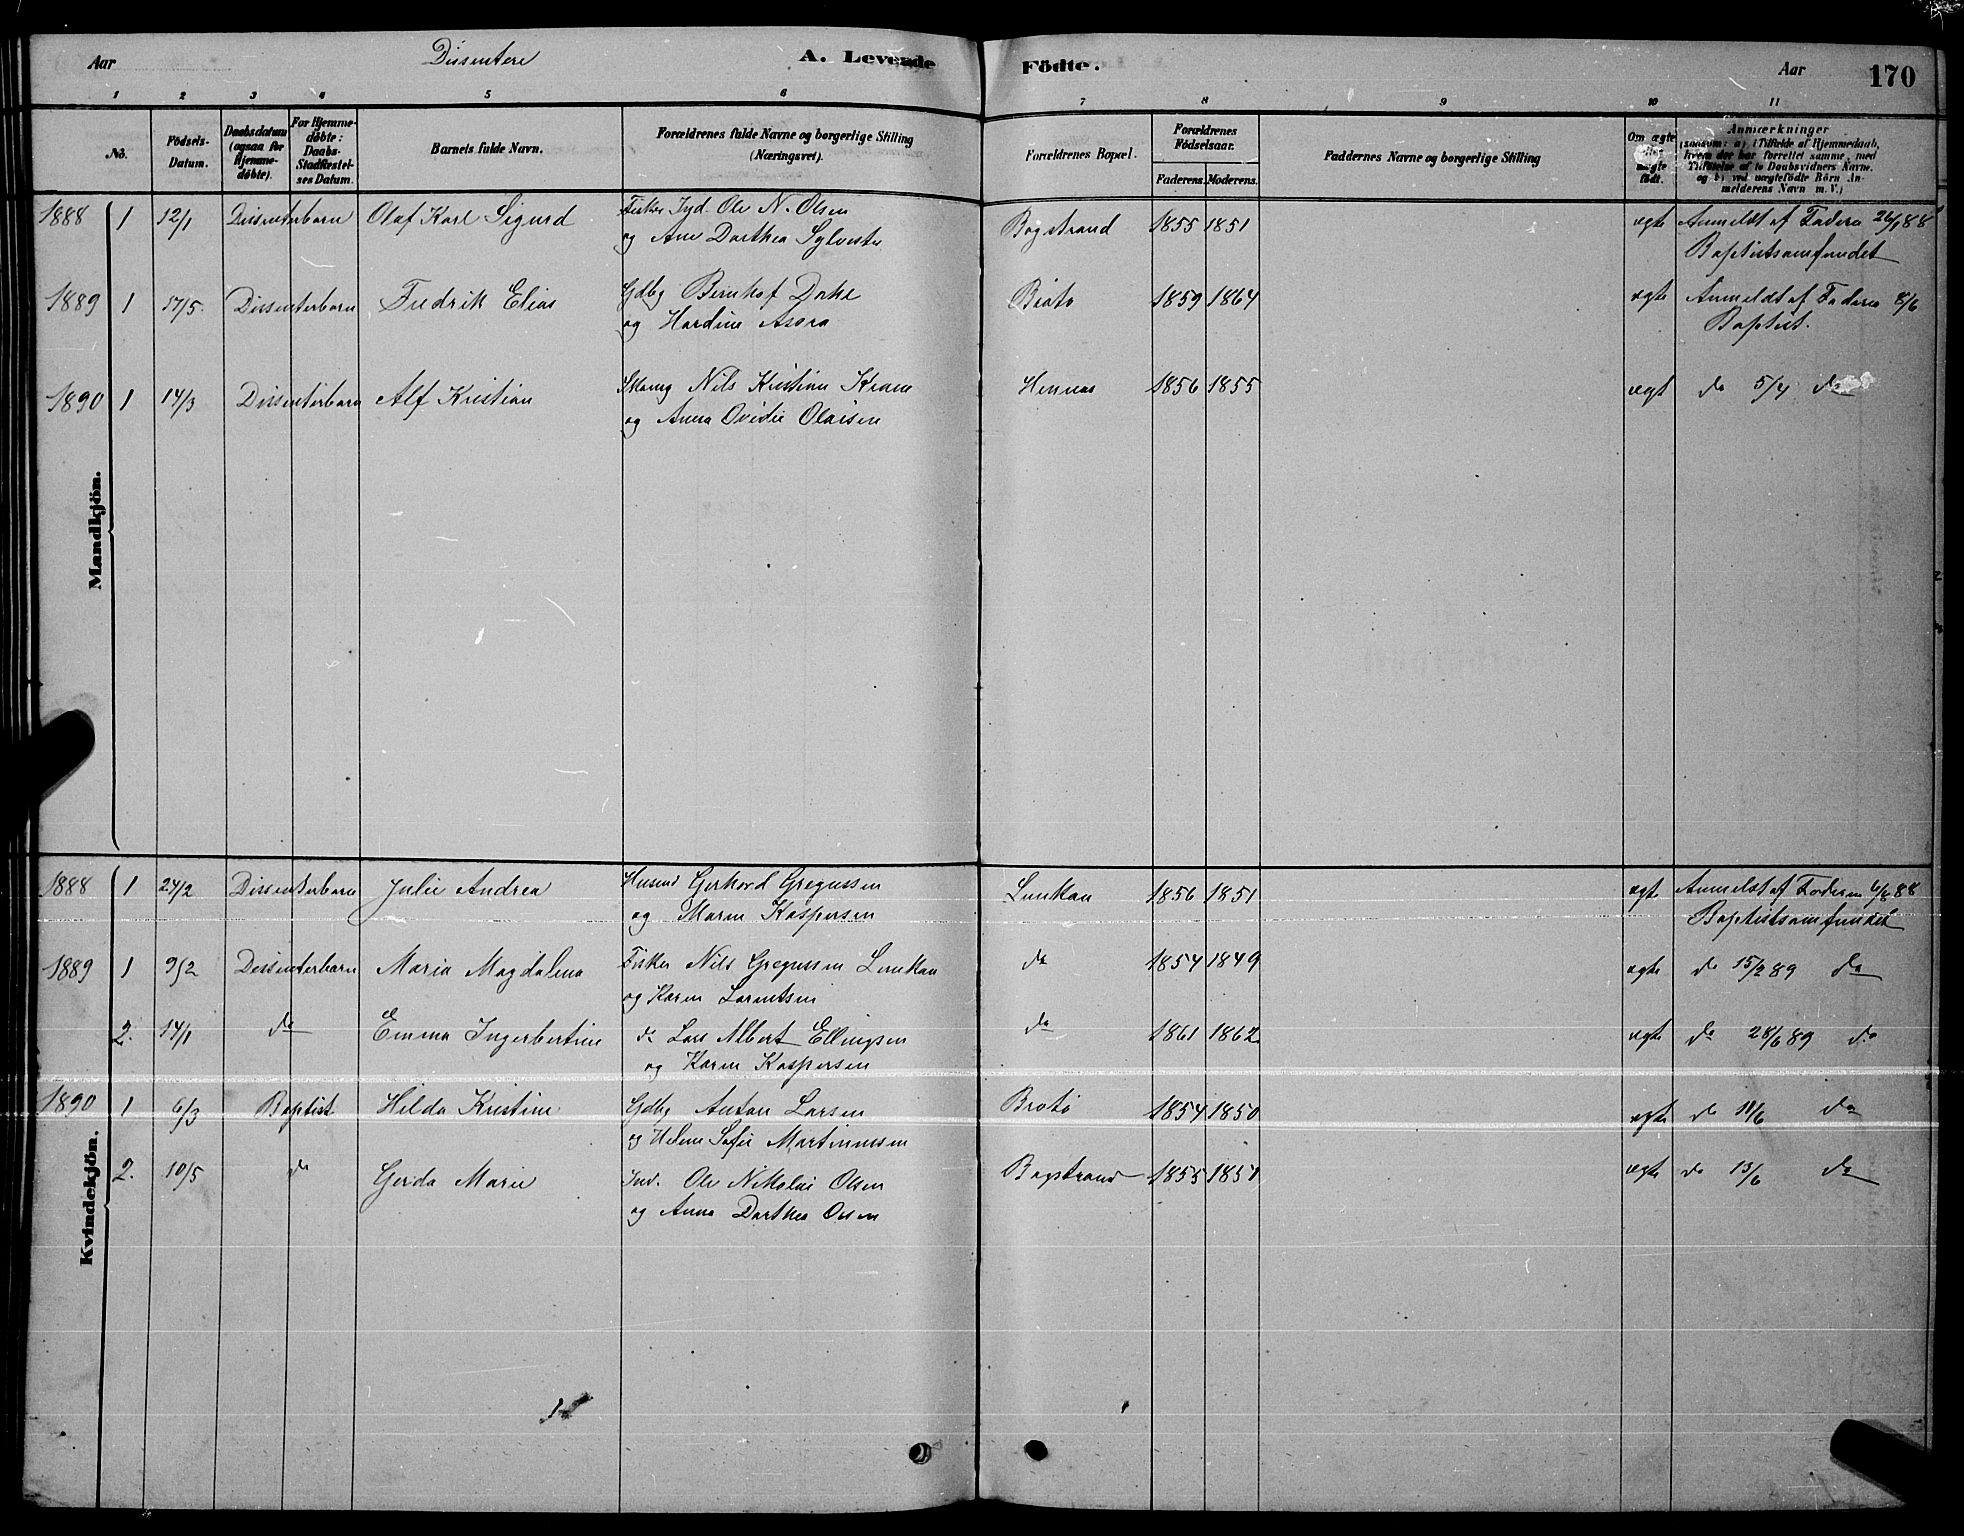 Aar Dissentere A. Levende Födte. Aar 170
1 2 3 4 5 6 7 8 9 10 11
No. Födsels-Datum. Daabsdatum (ogsaa for Hjemme-döbte). For Hjemme-döbte: Daabs-Stadfæstel-ses Datum. Barnets fulde Navn. Forældrenes fulde Navne og borgerlige Stilling (Næringsvei). Forældrenes Bopæl. Forældrenes Födselsaar. Faderens. Moderens. Faddernes Navne og borgerlige Stilling Om ægte eller uægte födt. Anmærkninger (saasom: a) i Tilfælde af Hjemmedaab, hvem der har forrettet samme, med Tilföielse af to Daabsvidners Navne, og b) ved uægtefödte Börn An-melderens Navn m. V.)
Mandkjön.
1888 1 12/1 Dissenterbarn Olaf Karl Sigurd Fisker Ole N. Olsen Bogstrand 1855 1851 ægte Anmeldt af Faderen 26/1 88
og Ane Dorthea Sylvester Baptistsamfundet
1889 1 17/5 Dissenterbarn Fredrik Elias Gdbg 1859 1864 ægte Anmeldt af Faderen 8/6
og Hardine Asora Baptist.
1890 1 14/3 Dissenterbarn Alf Kristian Nils Kristian Krane Hennes 1856 1855 ægt do 5/4 do
og Anna Ovidie Olaisen
Kvindekjön.
1888 1 24/2 Dissenterbarn Julie Andrea Husmd Gerhard Gregussen Lunkan 1856 1851 ægte Anmeldt af Faderen 6/8 88
og Maren Kaspersen Baptistsamfundet
1889 1 9/2 Dissenterbarn Maria Magdalena Fisker Nils Gregussen Lunkan do 1854 1849 ægte do 15/2 89 do
og Karen Lorentsen
2. 14/1 do Emma Ingerbertine do Lars Albert Ellingsen do 1861 1862 ægte do 28/6 89 do
og Karen Kaspersen
1890 1 6/3 Baptist Hilda Kristine Gdbg Anton Larsen Brotö 1854 1850 ægte do 18/6 do
og Helene Sofie Martinussen
2. 10/5 do Gerda Marie Ind. Ole Nikolai Olsen Bogstrand 1855 1851 ægte do 13/6 do
og Anna Dorthea Olsen